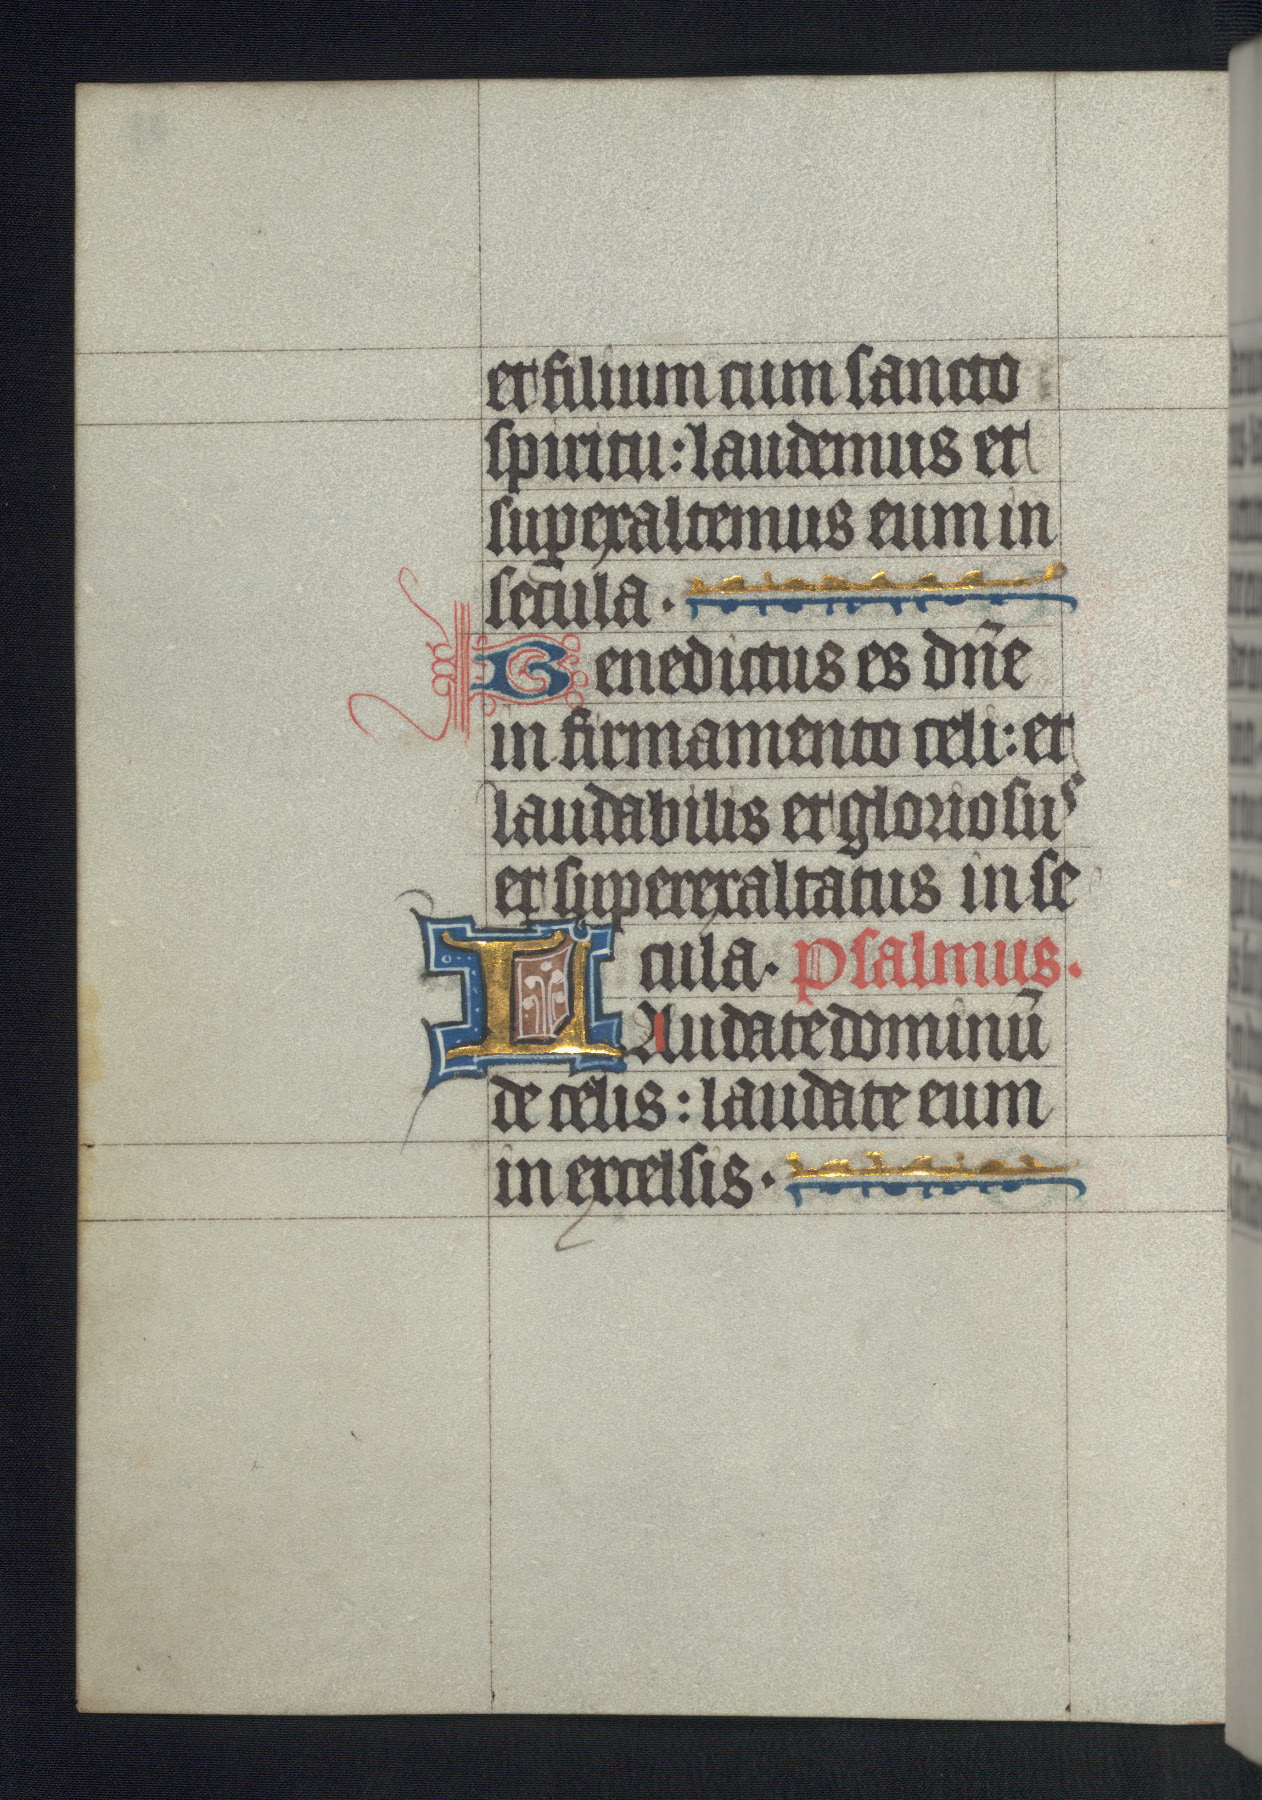 et filium cum sancto
spiritu: laudemus et
superaltemus eum in
secula.
Benedictus es dn̄e
in firmamento celi: et
laudabilis et gloriosus
et superexaltatus in se
cula. psalmus.
Laudate dominū
de celis: laudate eum
in excelsis.